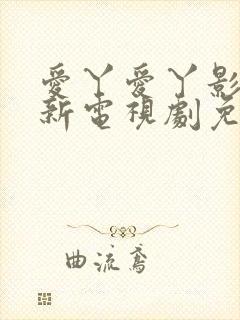 愛丫愛丫影
新電視劇免
曲流鳶